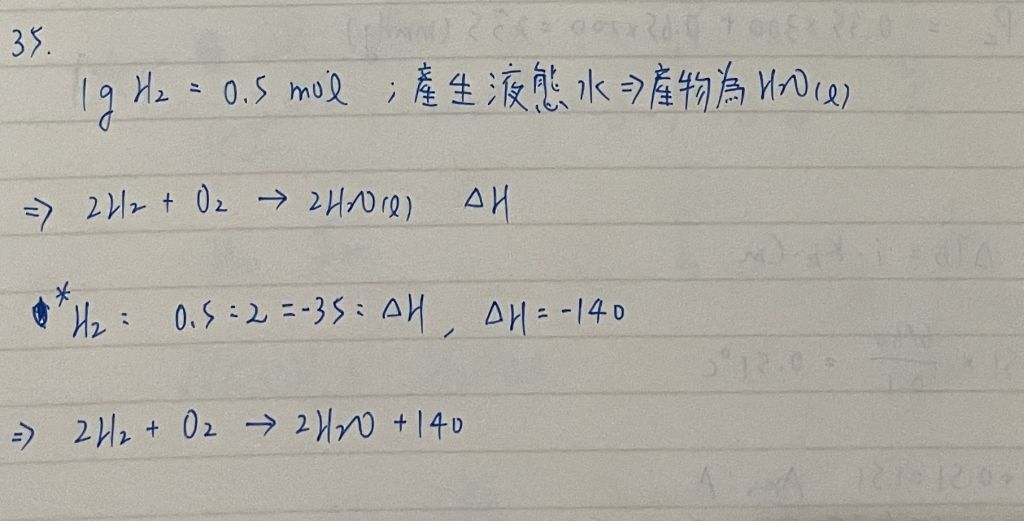 35.
1g H₂ = 0.5 mol ; 產生液態水 ⇒ 產物為 H₂O(l)
⇒ 2H₂ + O₂ → 2H₂O(l) ΔH
*H₂ : 0.5 : 2 = -35 : ΔH , ΔH = -140
⇒ 2H₂ + O₂ → 2H₂O + 140